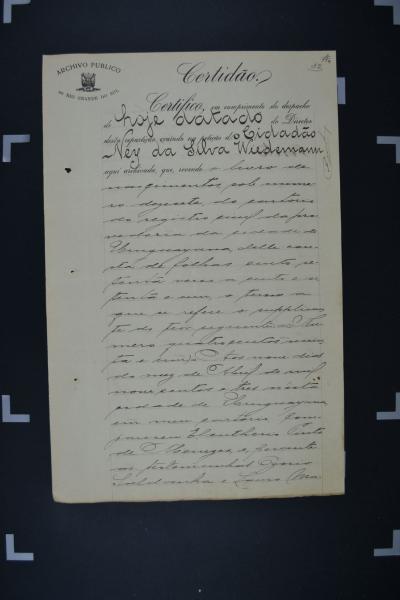 ARCHIVO PUBLICO
DO RIO GRANDE DO SUL
Certidão.
Certifico, em cumprimento do despacho
de hoje datado do Director
desta repartição, exarado na petição do Cidadão
Ney da Silva Wiedemann
aqui archivada, que, revendo o livro de
nascimentos, sob nume-
ro dezesete, do cartorio
do registro civil da pro-
vedoria da cidade de
Uruguayana, delle cons-
ta de folhas cento se-
tenta verso a cento e se-
tenta e um, o termo a
que se refere o supplican-
te do teor seguinte: Nu-
mero quatrocentos
Aos nove dias
do mez de Abril de mil
novecentos e tres nesta
cidade de Uruguayana
em meu cartorio com-
pareceu Eleutherio Pinto
de Menezes e, perante
as testemunhas Ozorio
Saldanha e Lauro